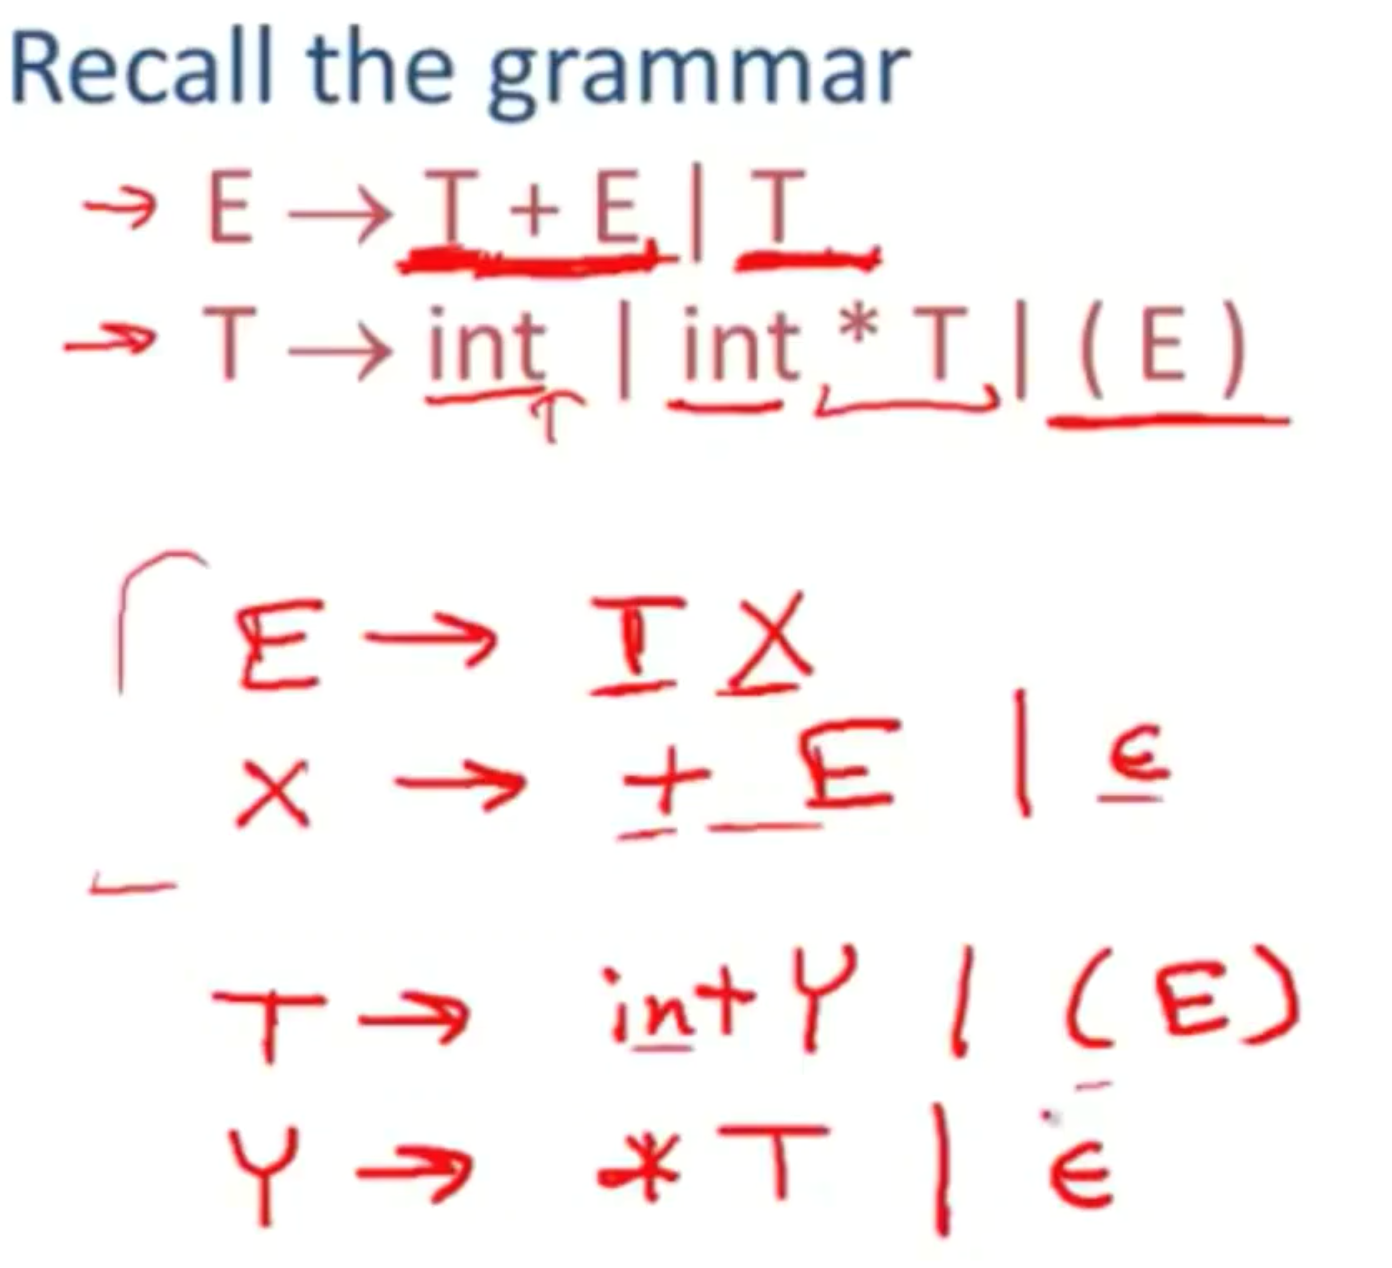 Recall the grammar
→ E → T + E | T
→ T → int | int * T | ( E )
E → T X
X → + E | ε
T → int Y | ( E )
Y → * T | ε